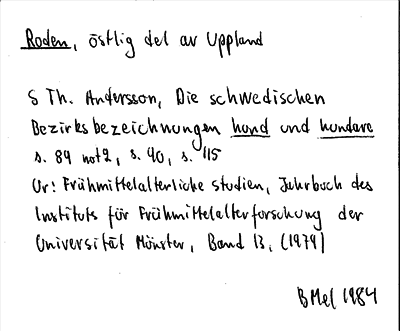 Roden, östlig del av Uppland
S Th. Andersson, Die schwedischen
Bezirksbezeichnungen hund und hundare
s. 89 not 2, s. 90, s. 115
Ur: Frühmittelalterliche Studien, Jahrbuch des
Instituts för Frühmittelalterforschung der
Universität Münster, Band 13, (1979)
BMel 1984